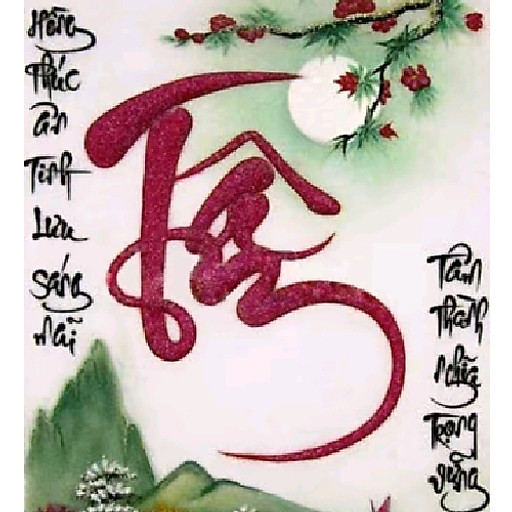 Hồng
Thúc
ân
Tình
Lưu
sáng
mãi
Tâm
Tâm
Thành
nghĩa
Trọng
vững